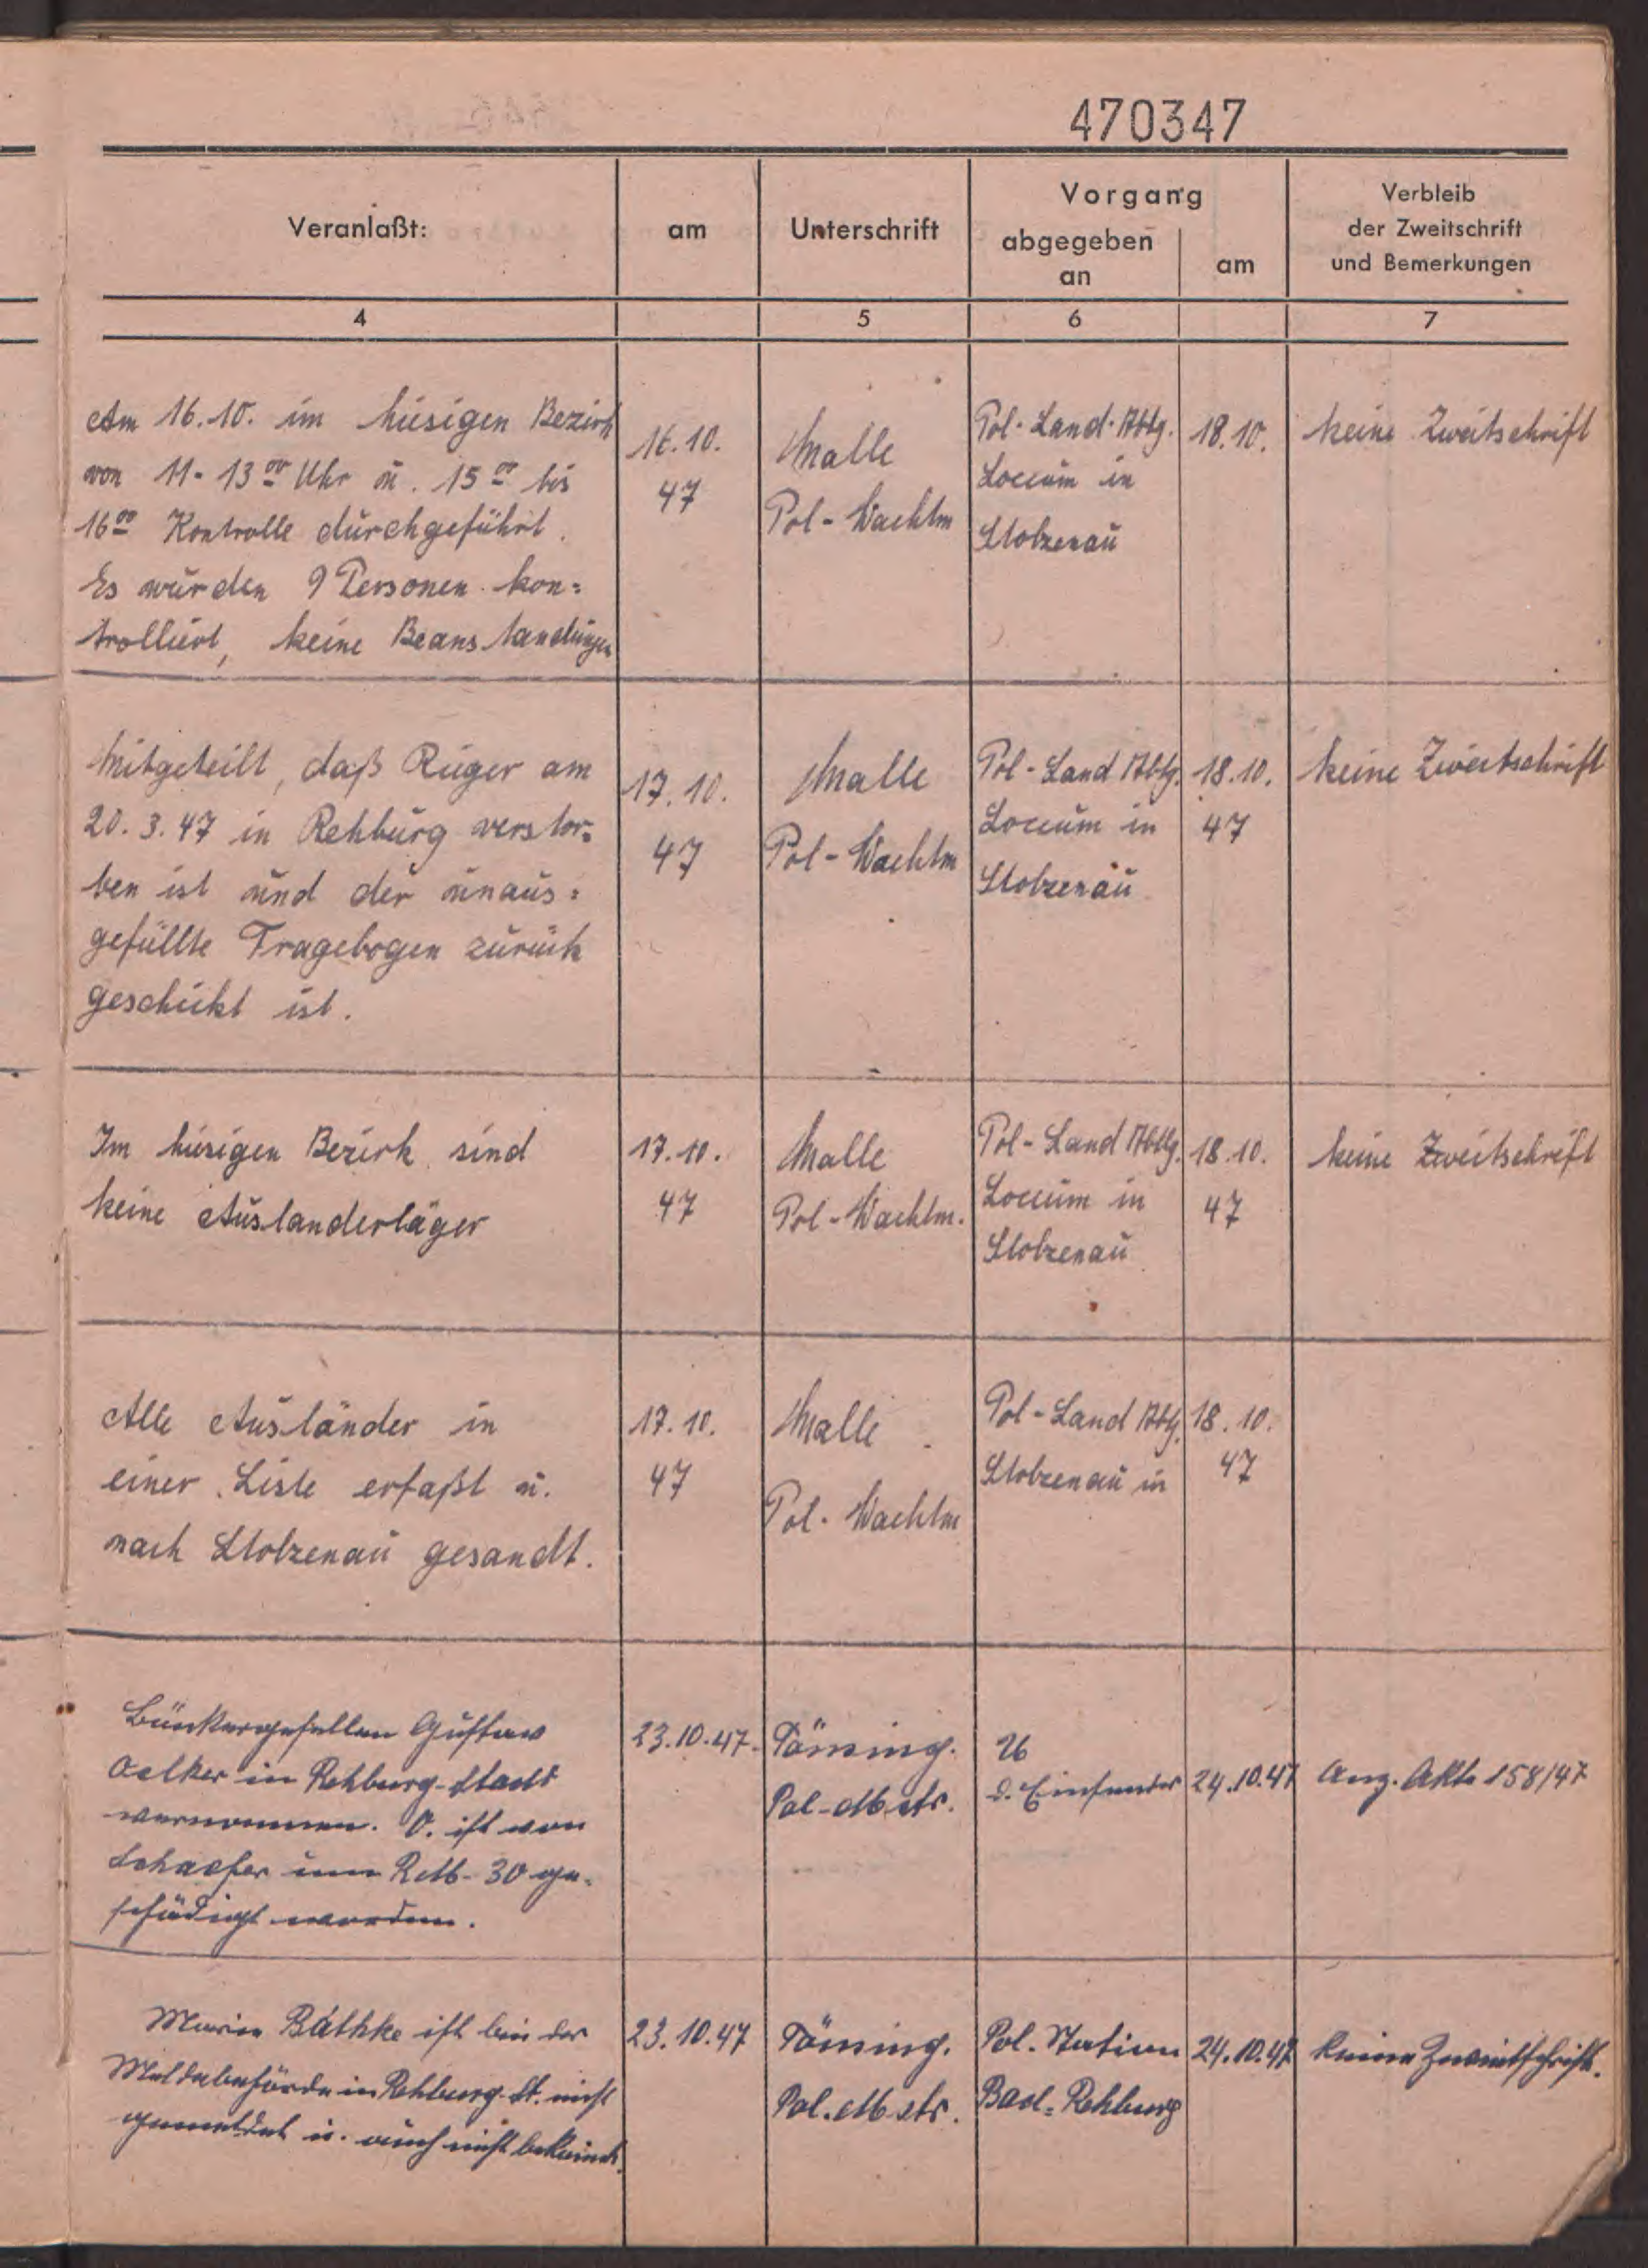 470347
Veranlaßt:
am
Unterschrift
Vorgang
abgegeben
an
am
Verbleib
der Zweitschrift
und Bemerkungen
4
5
6
7
Am 16.10. im hiesigen Bezirk
von 11-13⁰⁰ Uhr u. 15⁰⁰ bis
16⁰⁰ Kontrolle durchgeführt.
Es wurden 9 Personen kon=
trolliert, keine Beanstandungen
16.10.
47
Malle
Pol-Wachtm
Pol-Land-Abtg.
Loccum in
Stolzenau
18.10.
keine Zweitschrift
Mitgeteilt, daß Rüger am
20.3.47 in Rehburg verstor=
ben ist und der unaus=
gefüllte Fragebogen zurück
geschickt ist.
17.10.
47
Malle
Pol-Wachtm
Pol-Land Abtg.
Loccum in
Stolzenau
18.10.
47
keine Zweitschrift
Im hiesigen Bezirk sind
keine Auslanderläger
17.10.
47
Malle
Pol-Wachtm.
Pol-Land Abtlg.
Loccum in
Stolzenau
18.10.
47
keine Zweitschrift
Alle Ausländer in
einer Liste erfaßt u.
nach Stolzenau gesandt.
17.10.
47
Malle
Pol-Wachtm
Pol-Land Abtg.
Stolzenau in
18.10.
47
Gustav
Oelker in Rehburg-Stadt
vernommen. O. ist von
Schaefer um RM-30 ge-
schädigt worden.
23.10.47.
Tönsing.
Pol-Mstr.
U
d. Einsender
24.10.47
Anz. Akte 158/47
Marie Bäthke ist bei der
Meldebehörde in Rehburg-St. nicht
gemeldet u. auch nicht bekannt.
23.10.47
Tönsing.
Pol.Mstr.
Pol.Station
Bad=Rehburg
24.10.47
keine Zweitschrift.